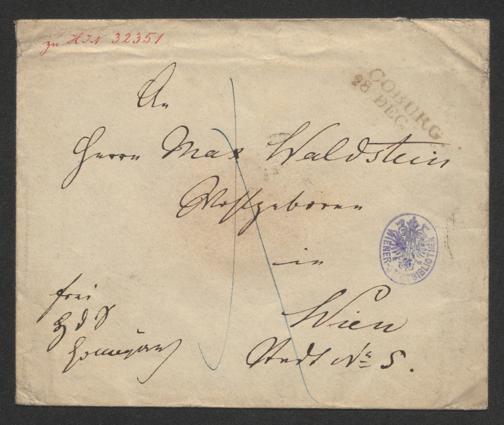 zu H.I.N 32351
COBURG
28 DEC.
An
Herrn Max Waldstein
Wohlgeboren
in
Wien
Stadt No 5.
frei
WIENER BIBLIOTHEK